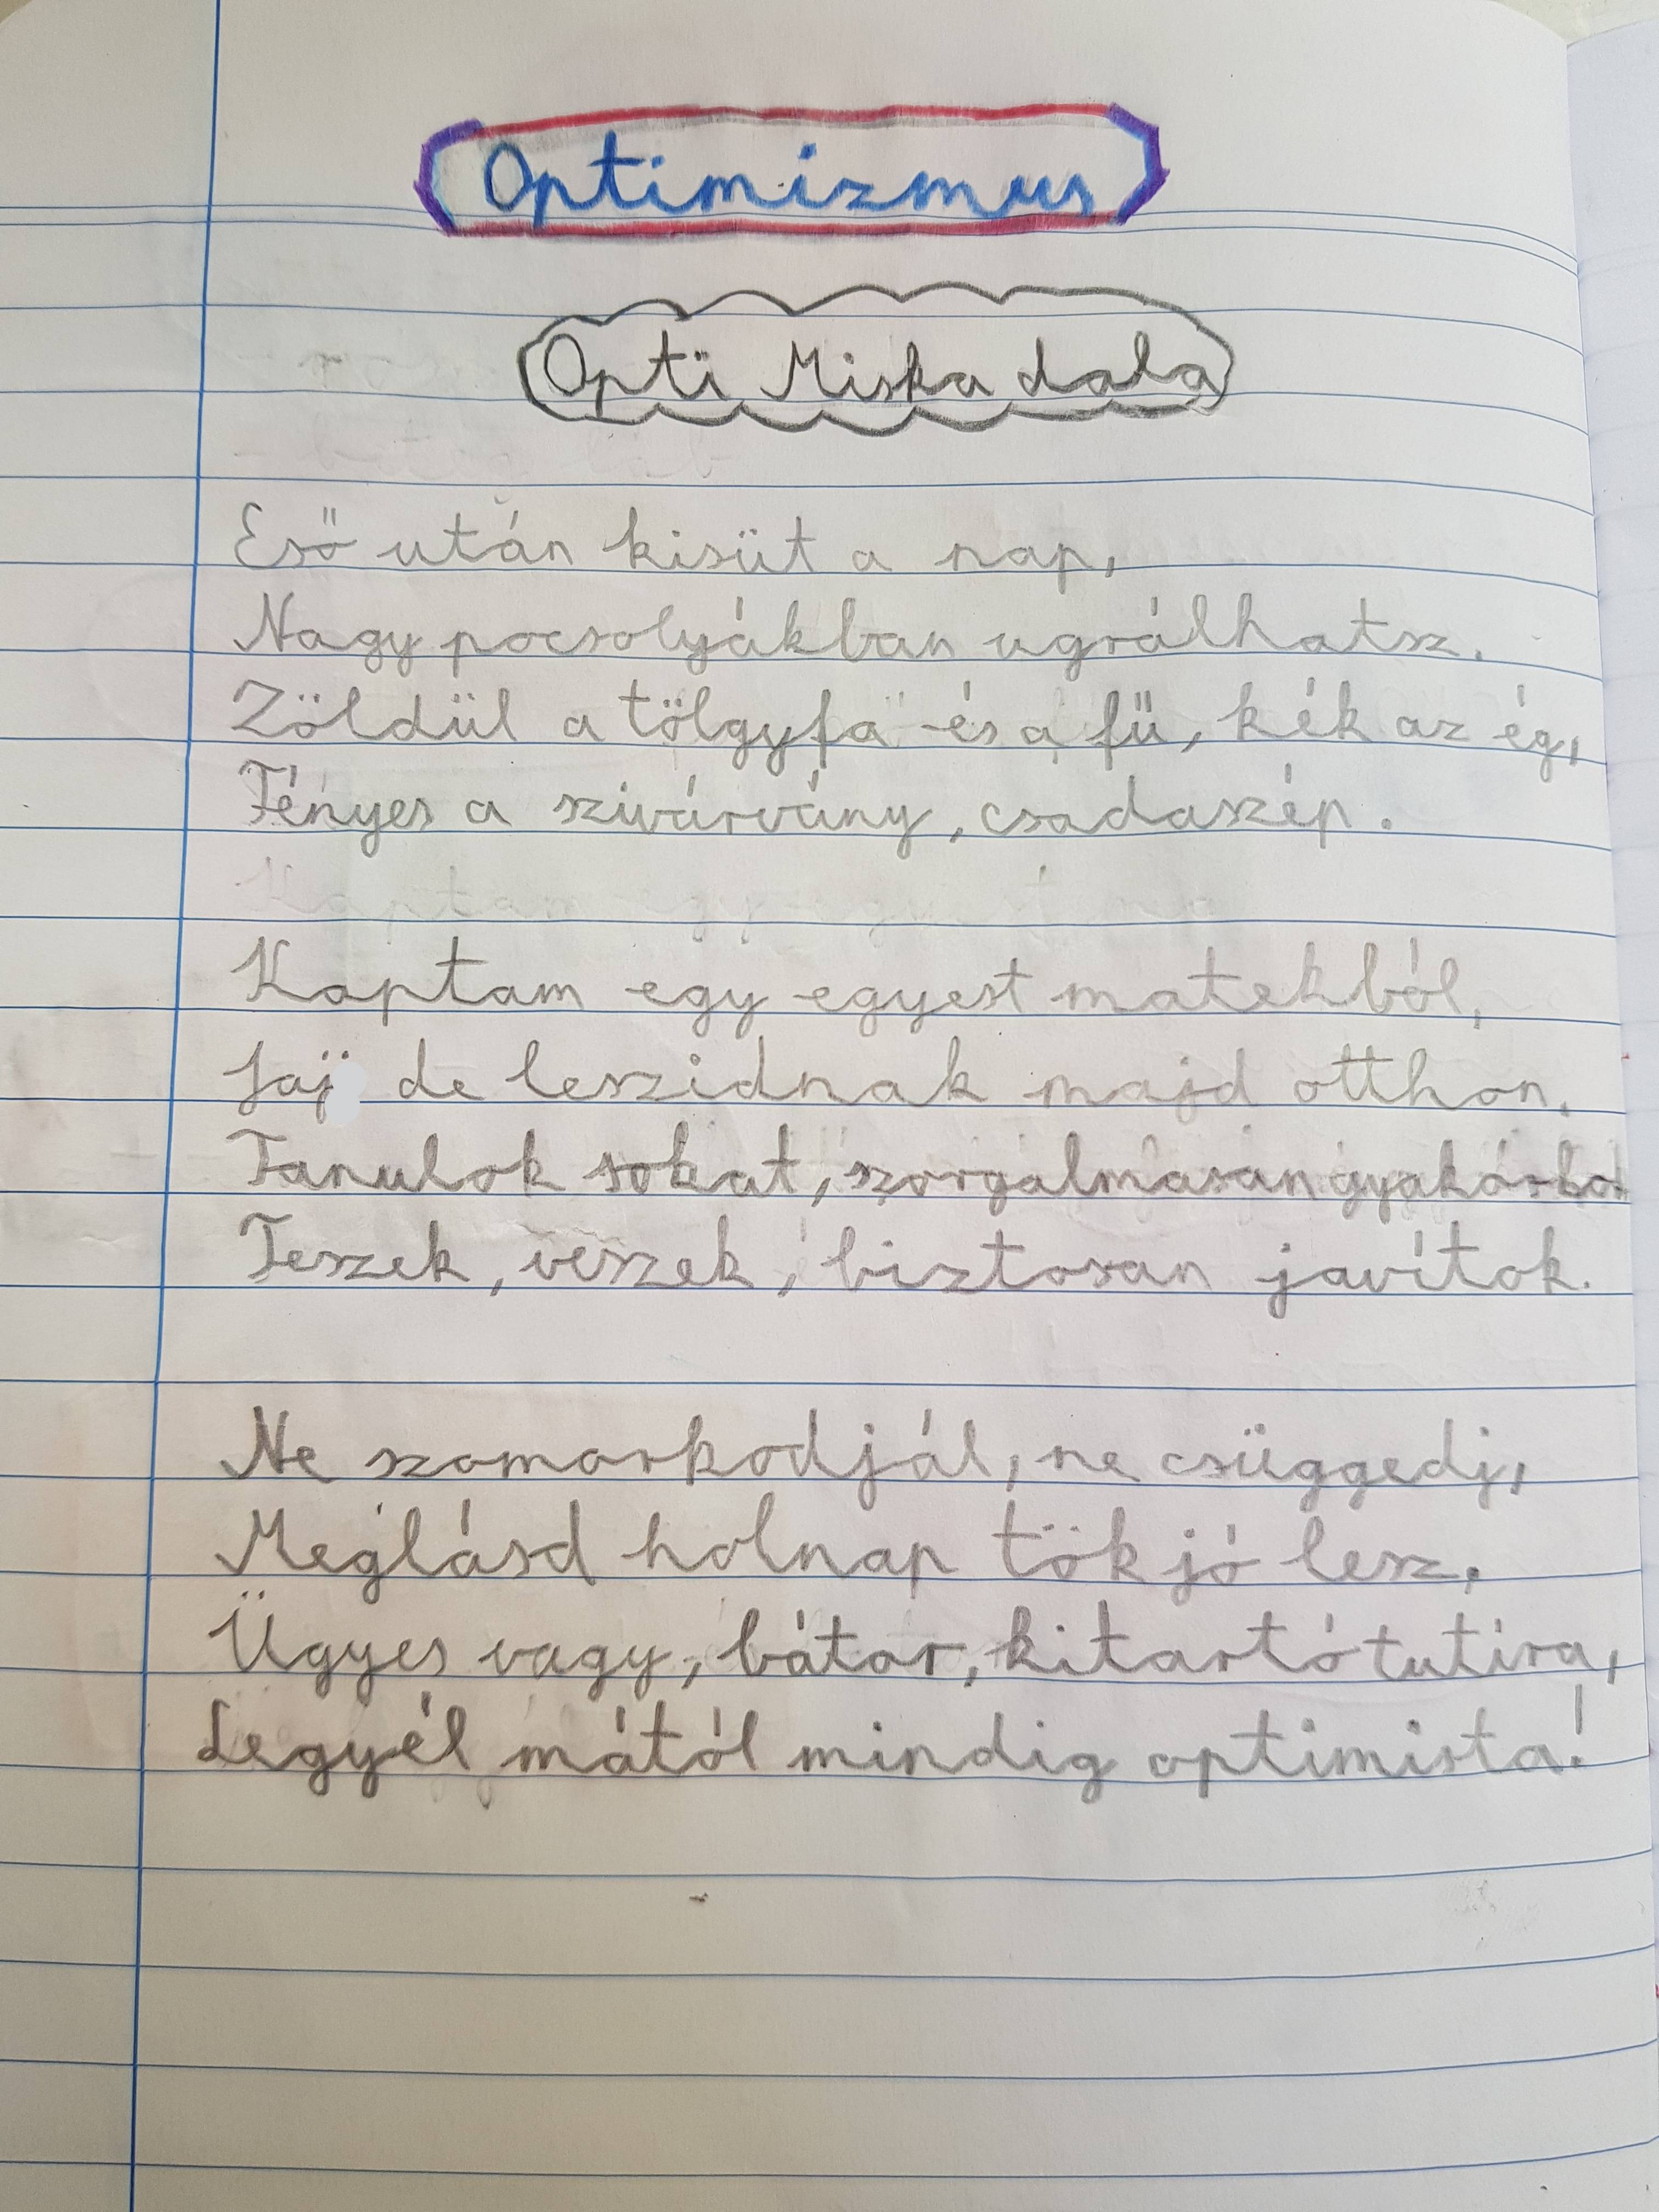 Optimizmus
Opti Miska dala
Eső után kisüt a nap,
Nagy pocsolyákban ugrálhatsz.
Zöldül a tölgyfa és a fű, kék az ég,
Fényes a szivárvány, csodaszép.
Kaptam egy egyest matekból,
Jaj de leszidnak majd otthon.
Tanulok sokat, szorgalmasan
Teszek, veszek, biztosan javítok.
Ne szomorkodjál, ne csüggedj,
Meglásd holnap tök jó lesz.
Ügyes vagy, bátor, kitartó tutira,
Legyél mától mindig optimista!